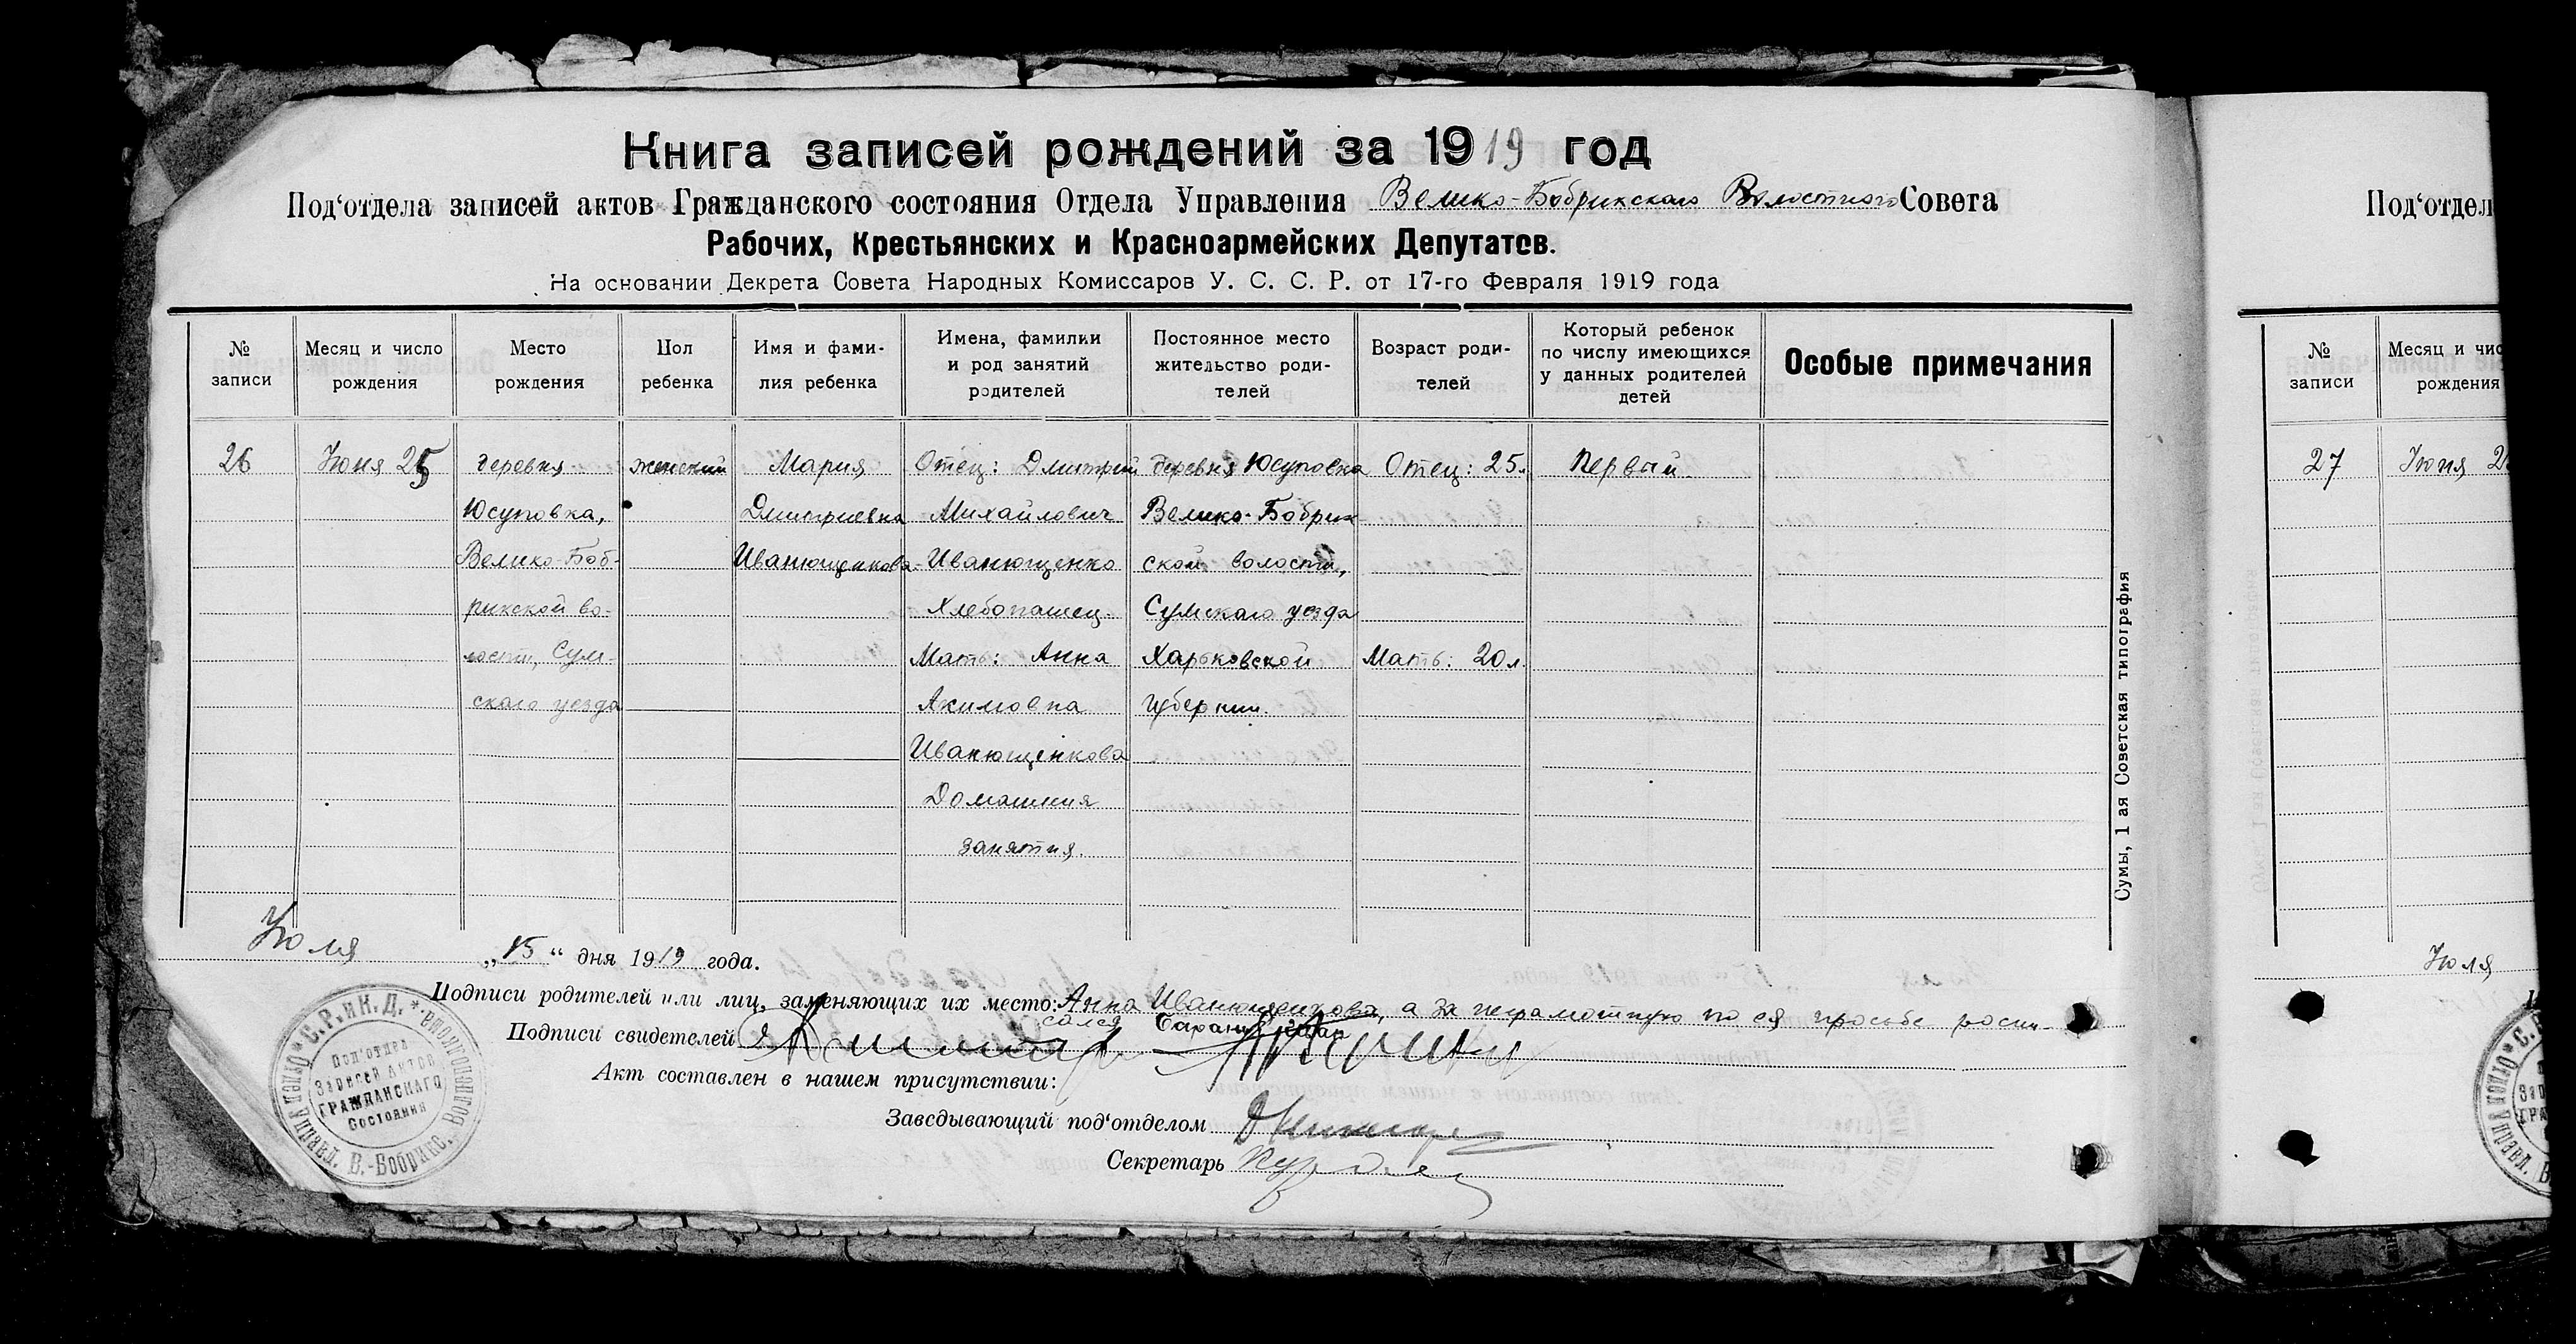 Книга записей рождений за 1919 год
Под‘отдела записей актов Гражданского состояния Отдела Управления Велико-Бобрикского Волостного Совета
Рабочих, Крестьянских и Красноармейских Депутатов.
На основании Декрета Совета Народных Комиссаров У. С. С. Р. от 17-го Февраля 1919 года
№ записи
Месяц и число рождения
Место рождения
Пол ребенка
Имя и фами-
лия ребенка
Имена, фамилки
и род занятий
родителей
Постоянное место
жительство роди-
телей
Возраст роди-
телей
Который ребенок
по числу имеющихся
у данных родителей
детей
Особые примечания
26
Июня 25
деревня
Юсуповка,
Велико-Боб-
рикской во-
лости, Сум-
ского уезда
женский
Мария
Дмитриевна
Иванющенкова
Отец: Дмитрий
Михайлович
Иванющенко
Хлебопашец
Мать: Анна
Акимовна
Иванющенкова
Домашния
занятия.
деревня Юсуповка
Велико-Бобрик
ской волости,
Сумскаго уезда
Харьковской
губернии.
Отец: 25 л.
Мать: 20 л.
Первый
Сумы, 1 ая Советская типография
Июля „15“ дня 1919 года.
Подписи родителей или лиц, заменяющих их место: Анна Иванющенкова, а за неграмотную по ея просьбе распи-
сался
Подписи свидетелей
Акт составлен в нашем присутствии:
Заведывающий под‘отделом
Секретарь
С.Р. и К.Д. * Отдел Управл. В.-Бобрикс. Волисполкома
Под‘отдел
Записей Актов
Гражданскаго
Состояния
Под‘отдел
№ записи
Месяц и чис
рождения
27
Июня 2
Июля